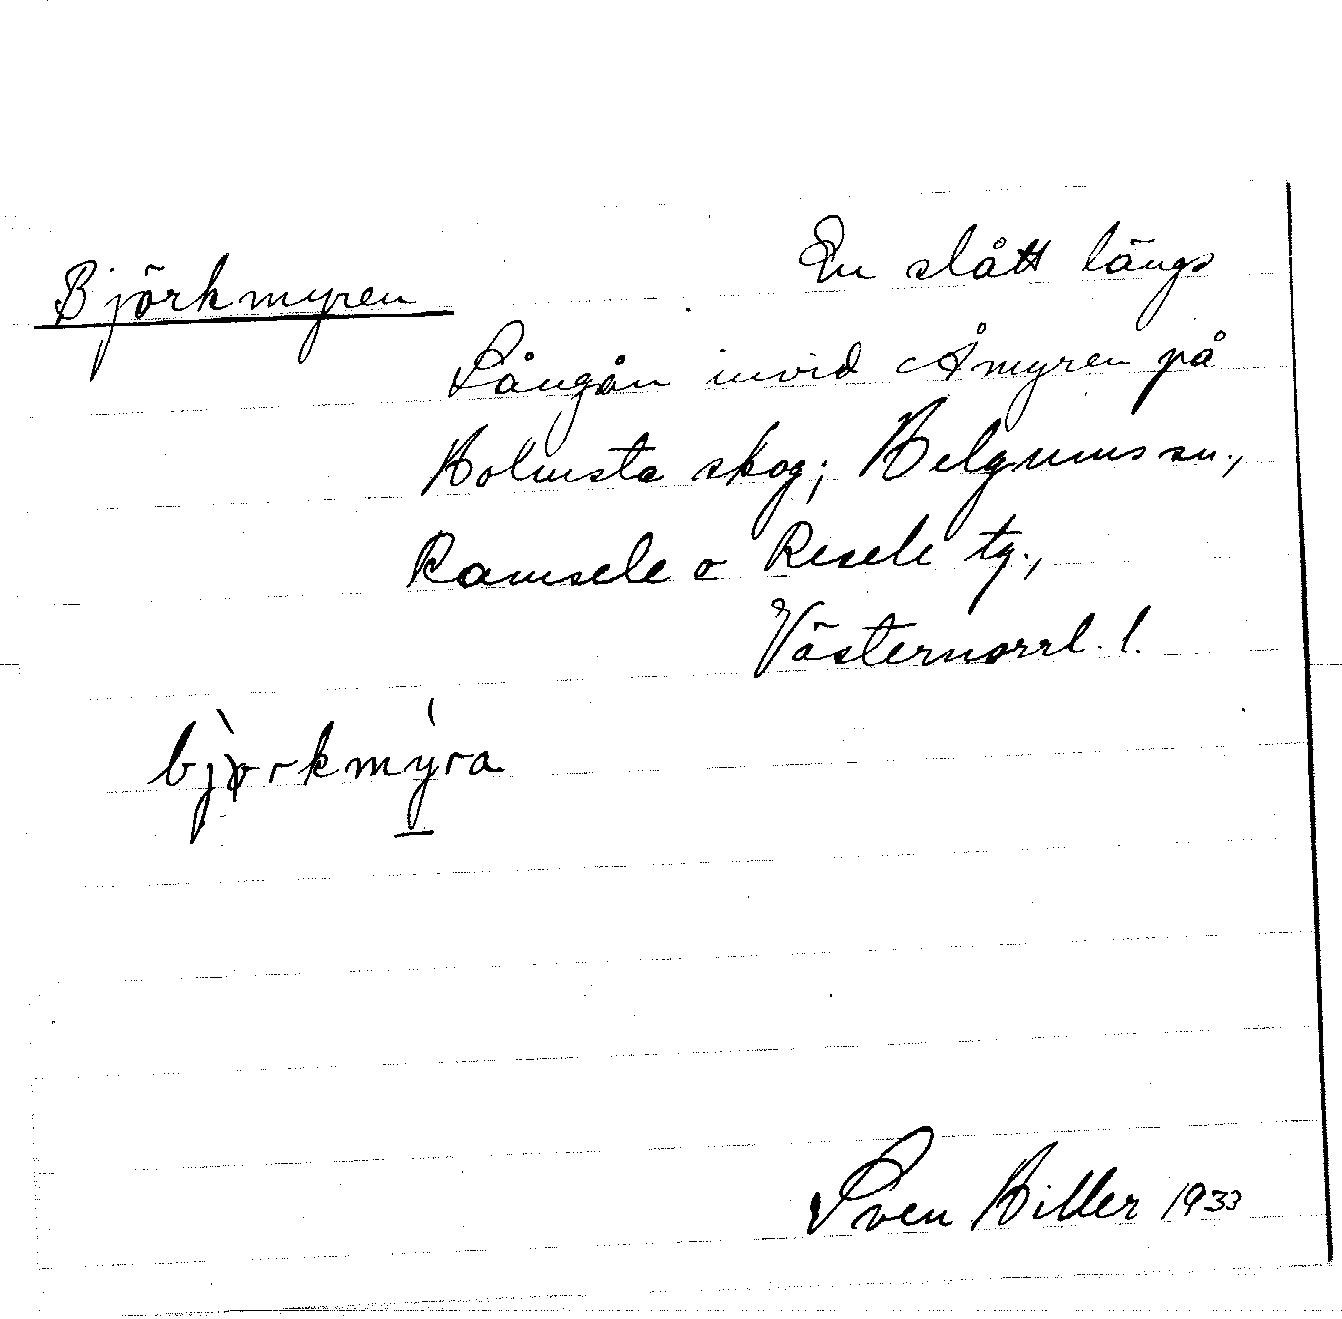 Björkmyren
En slått längs
Långån invid Åmyren på
Holmsta skog; Helgums sn.,
Ramsele o Resele tg.,
Västernorrl. l.
bjòrkmýra
Sven Hiller 1933